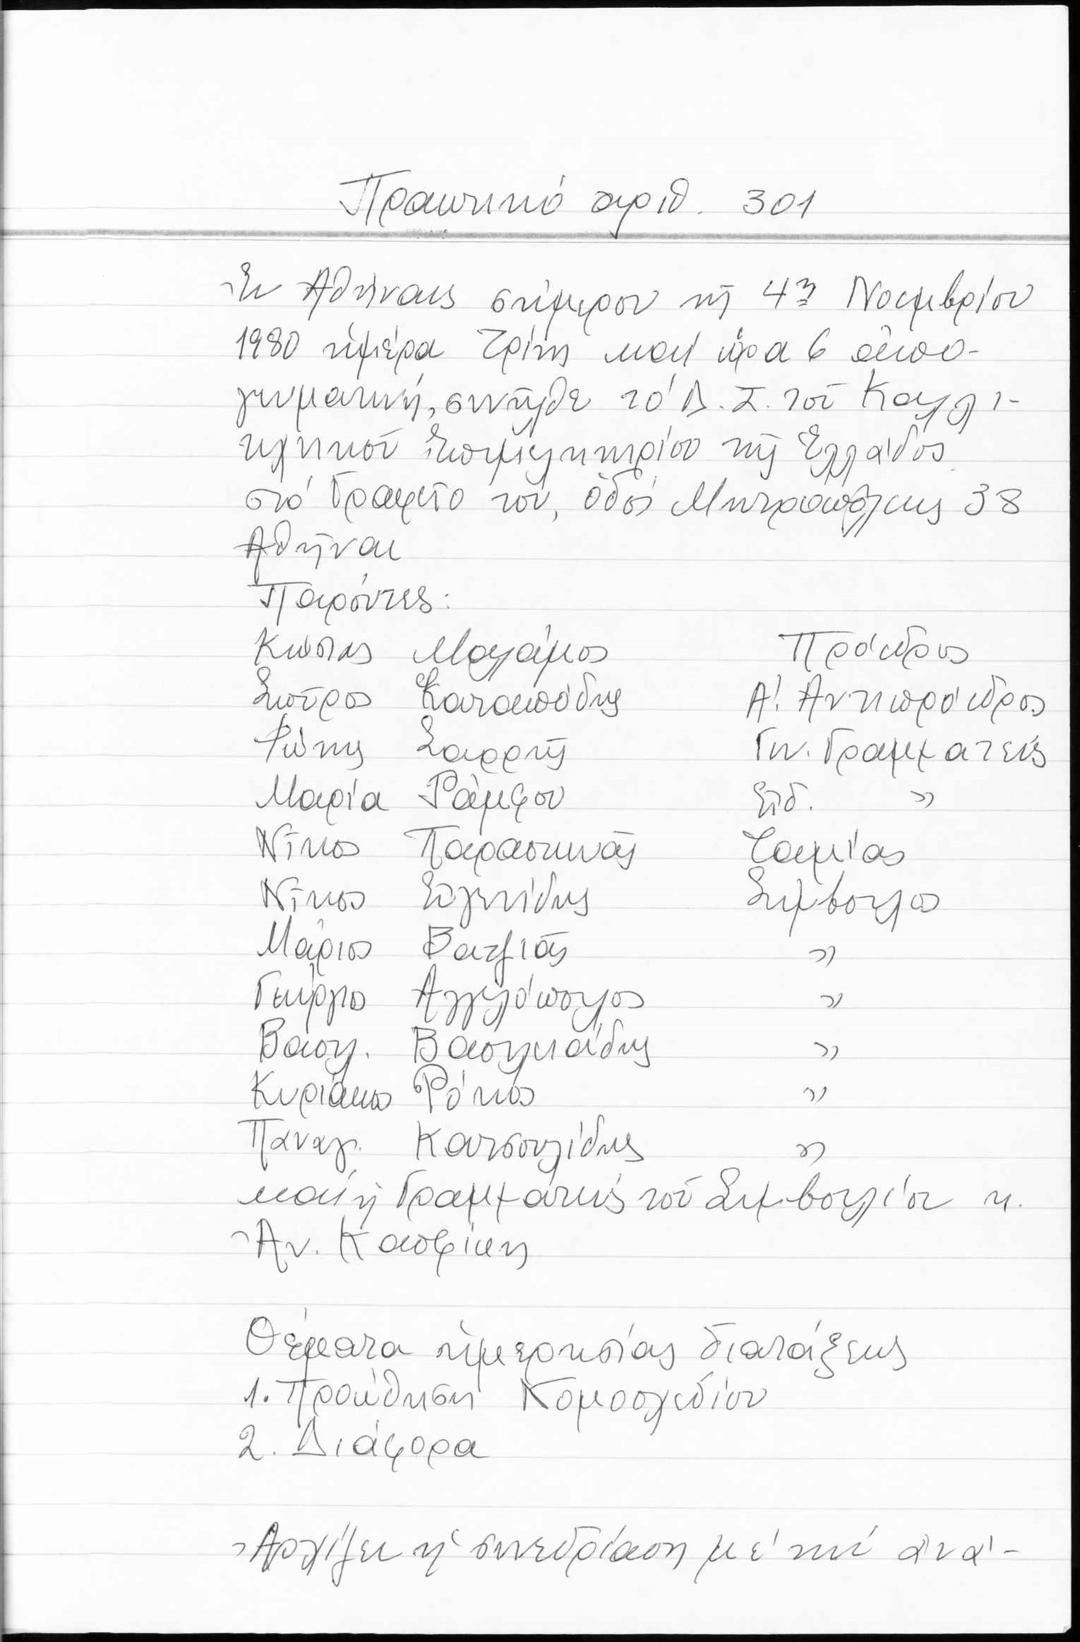 Πρακτικό ἀριθ. 301
Ἐν Ἀθήναις σήμερον τῇ 4ῃ Νοεμβρίου
1980 ἡμέρα Τρίτη καί ὥρα 6 ἀπο-
γευματινή, συνῆλθε τό Δ.Σ. τοῦ Καλλι-
τεχνικοῦ Ἐπιμελητηρίου τῆς Ἑλλάδος
στό Γραφεῖο του, ὁδός Μητροπόλεως 38
Ἀθῆναι
Παρόντες:
Κώστας Μαλάμος Πρόεδρος
Σπῦρος Καταπόδης Α'. Ἀντιπρόεδρος
Φώτης Σαρρῆς Γεν. Γραμματεύς
Μαρία Ράμφου Εἰδ. "
Νῖκος Παρασκευᾶς Ταμίας
Νῖκος Εὐγενίδης Σύμβουλος
Μάριος Βατζιᾶς "
Γεώργιος Ἀγγελόπουλος "
Βασιλ. Βασιλειάδης "
Κυριάκος Ρόκος "
Παναγ. Κατσουλίδης "
καί ἡ Γραμματεύς τοῦ Συμβουλίου κ.
Ἀν.
Θέματα ἡμερησίας διατάξεως
1. Προώθηση Νομοσχεδίου
2. Διάφορα
Ἀρχίζει ἡ συνεδρίαση μέ τήν ἀνά-